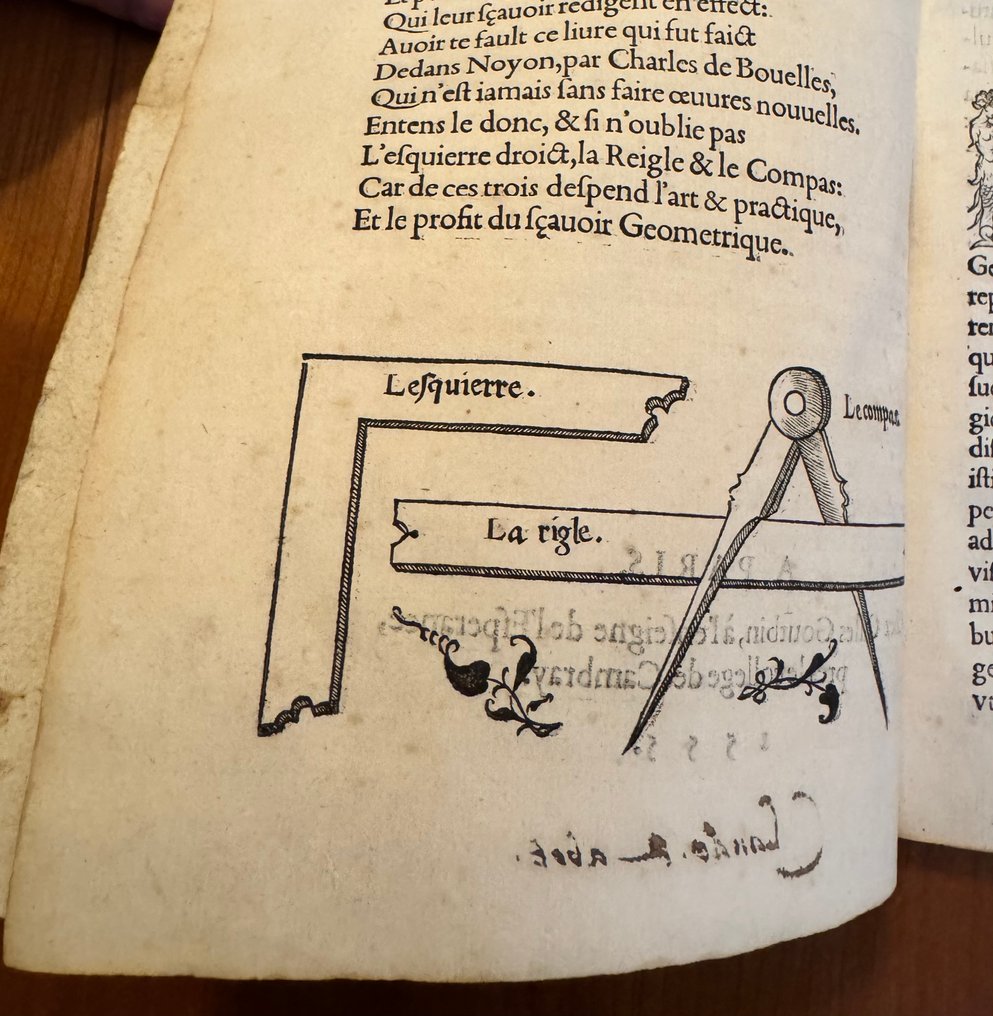 Qui leur ſçauoir redigent en effect:
Auoir te fault ce liure qui fut faict
Dedans Noyon, par Charles de Bouelles,
Qui n'eſt iamais ſans faire œuures nouuelles.
Entens le donc, & ſi n'oublie pas
L'eſquierre droict, la Reigle & le Compas:
Car de ces trois deſpend l'art & practique,
Et le profit du ſçauoir Geometrique.
Leſquierre.
Le compas
La rigle.
A PARIS.
Gourbin, à l'enſeigne de l'Eſperance,
college de Cambray
1555.
Claude
Ge
rep
qu
ſuc
gio
iſti
pe
ad
bu
ge